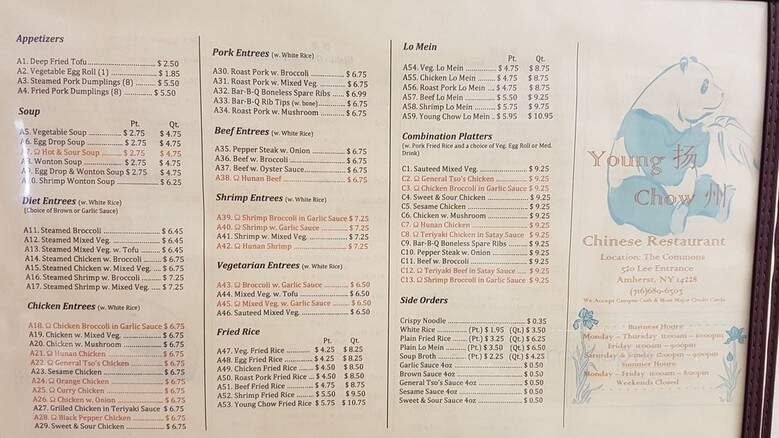 Appetizers
A1. Deep Fried Tofu $ 2.50
A2. Vegetable Egg Roll (1) $ 1.85
A3. Steamed Pork Dumplings (8) $ 5.50
A4. Fried Pork Dumplings (8) $ 5.50
Soup
Pt. Qt.
A5. Vegetable Soup $ 2.75 $ 4.75
A6. Egg Drop Soup $ 2.75 $ 4.75
Ω Hot & Sour Soup $ 2.75 $ 4.75
Wonton Soup $ 2.75 $ 4.75
Egg Drop & Wonton Soup $ 2.75 $ 4.75
Shrimp Wonton Soup $ 6.25
Diet Entrees (w. White Rice)
(Choice of Brown or Garlic Sauce)
A11. Steamed Broccoli $ 6.45
A12. Steamed Mixed Veg. $ 6.45
A13. Steamed Mixed Veg. w. Tofu $ 6.45
A14. Steamed Chicken w. Broccoli $ 6.75
A15. Steamed Chicken w. Mixed Veg. $ 6.75
A16. Steamed Shrimp w. Broccoli $ 7.25
A17. Steamed Shrimp w. Mixed Veg. $ 7.25
Chicken Entrees (w. White Rice)
A18. Ω Chicken Broccoli in Garlic Sauce $ 6.75
A19. Chicken w. Mixed Veg. $ 6.75
A20. Chicken w. Mushroom $ 6.75
A21. Ω Hunan Chicken $ 6.75
A22. Ω General Tso's Chicken $ 6.75
A23. Sesame Chicken $ 6.75
A24. Ω Orange Chicken $ 6.75
A25. Ω Curry Chicken $ 6.75
A26. Ω Chicken w. Onion $ 6.75
A27. Grilled Chicken in Teriyaki Sauce $ 6.75
A28. Ω Black Pepper Chicken $ 6.75
A29. Sweet & Sour Chicken $ 6.75
Pork Entrees (w. White Rice)
A30. Roast Pork w. Broccoli $ 6.75
A31. Roast Pork w. Mixed Veg. $ 6.75
A32. Bar-B-Q Boneless Spare Ribs $ 6.99
A33. Bar-B-Q Rib Tips (w. bone) $ 6.75
A34. Roast Pork w. Mushroom $ 6.75
Beef Entrees (w. White Rice)
A35. Pepper Steak w. Onion $ 6.75
A36. Beef w. Broccoli $ 6.75
A37. Beef w. Oyster Sauce $ 6.75
A38. Ω Hunan Beef $ 6.75
Shrimp Entrees (w. White Rice)
A39. Ω Shrimp Broccoli in Garlic Sauce $ 7.25
A40. Ω Shrimp w. Garlic Sauce $ 7.25
A41. Shrimp w. Mixed Veg. $ 7.25
A42. Ω Hunan Shrimp $ 7.25
Vegetarian Entrees (w. White Rice)
A43. Ω Broccoli w. Garlic Sauce $ 6.50
A44. Mixed Veg. w. Tofu $ 6.50
A45. Ω Mixed Veg. w. Garlic Sauce $ 6.50
A46. Sauteed Mixed Veg. $ 6.50
Fried Rice
Pt. Qt.
A47. Veg. Fried Rice $ 4.25 $ 8.25
A48. Egg Fried Rice $ 4.25 $ 8.25
A49. Chicken Fried Rice $ 4.50 $ 8.50
A50. Roast Pork Fried Rice $ 4.50 $ 8.50
A51. Beef Fried Rice $ 4.75 $ 8.75
A52. Shrimp Fried Rice $ 5.50 $ 9.50
A53. Young Chow Fried Rice $ 5.75 $ 10.75
Lo Mein
Pt. Qt.
A54. Veg. Lo Mein $ 4.75 $ 8.75
A55. Chicken Lo Mein $ 4.75 $ 8.75
A56. Roast Pork Lo Mein $ 4.75 $ 8.75
A57. Beef Lo Mein $ 5.50 $ 9.25
A58. Shrimp Lo Mein $ 5.75 $ 9.75
A59. Young Chow Lo Mein $ 5.95 $ 10.95
Combination Platters
(w. Pork Fried Rice and a choice of Veg. Egg Roll or Med. Drink)
C1. Sauteed Mixed Veg. $ 9.25
C2. Ω General Tso's Chicken $ 9.25
C3. Ω Chicken Broccoli in Garlic Sauce $ 9.25
C4. Sweet & Sour Chicken $ 9.25
C5. Sesame Chicken $ 9.25
C6. Chicken w. Mushroom $ 9.25
C7. Ω Hunan Chicken $ 9.25
C8. Ω Teriyaki Chicken in Satay Sauce $ 9.25
C9. Bar-B-Q Boneless Spare Ribs $ 9.25
C10. Pepper Steak w. Onion $ 9.25
C11. Beef w. Broccoli $ 9.25
C12. Ω Teriyaki Beef in Satay Sauce $ 9.25
C13. Ω Shrimp Broccoli in Garlic Sauce $ 9.25
Side Orders
Crispy Noodle $ 0.35
White Rice (Pt.) $ 1.95 (Qt.) $ 3.50
Plain Fried Rice (Pt.) $ 3.25 (Qt.) $ 6.25
Plain Lo Mein (Pt.) $ 3.50 (Qt.) $ 6.50
Soup Broth (Pt.) $ 2.25 (Qt.) $ 4.25
Garlic Sauce 4oz $ 0.50
Brown Sauce 4oz $ 0.50
General Tso's Sauce 4oz $ 0.50
Sesame Sauce 4oz $ 0.50
Sweet & Sour Sauce 4oz $ 0.50
Young 扬
Chow 州
Chinese Restaurant
Location: The Commons
520 Lee Entrance
Amherst, NY 14228
(716)689-6505
We Accept Campus Cash & Most Major Credit Cards
Business Hours
Monday – Thursday 11:00am – 8:00pm
Friday 11:00am – 9:00pm
Saturday & Sunday 12:00pm – 9:00pm
Summer Hours
Monday – Friday 11:00am – 8:00pm
Weekends Closed